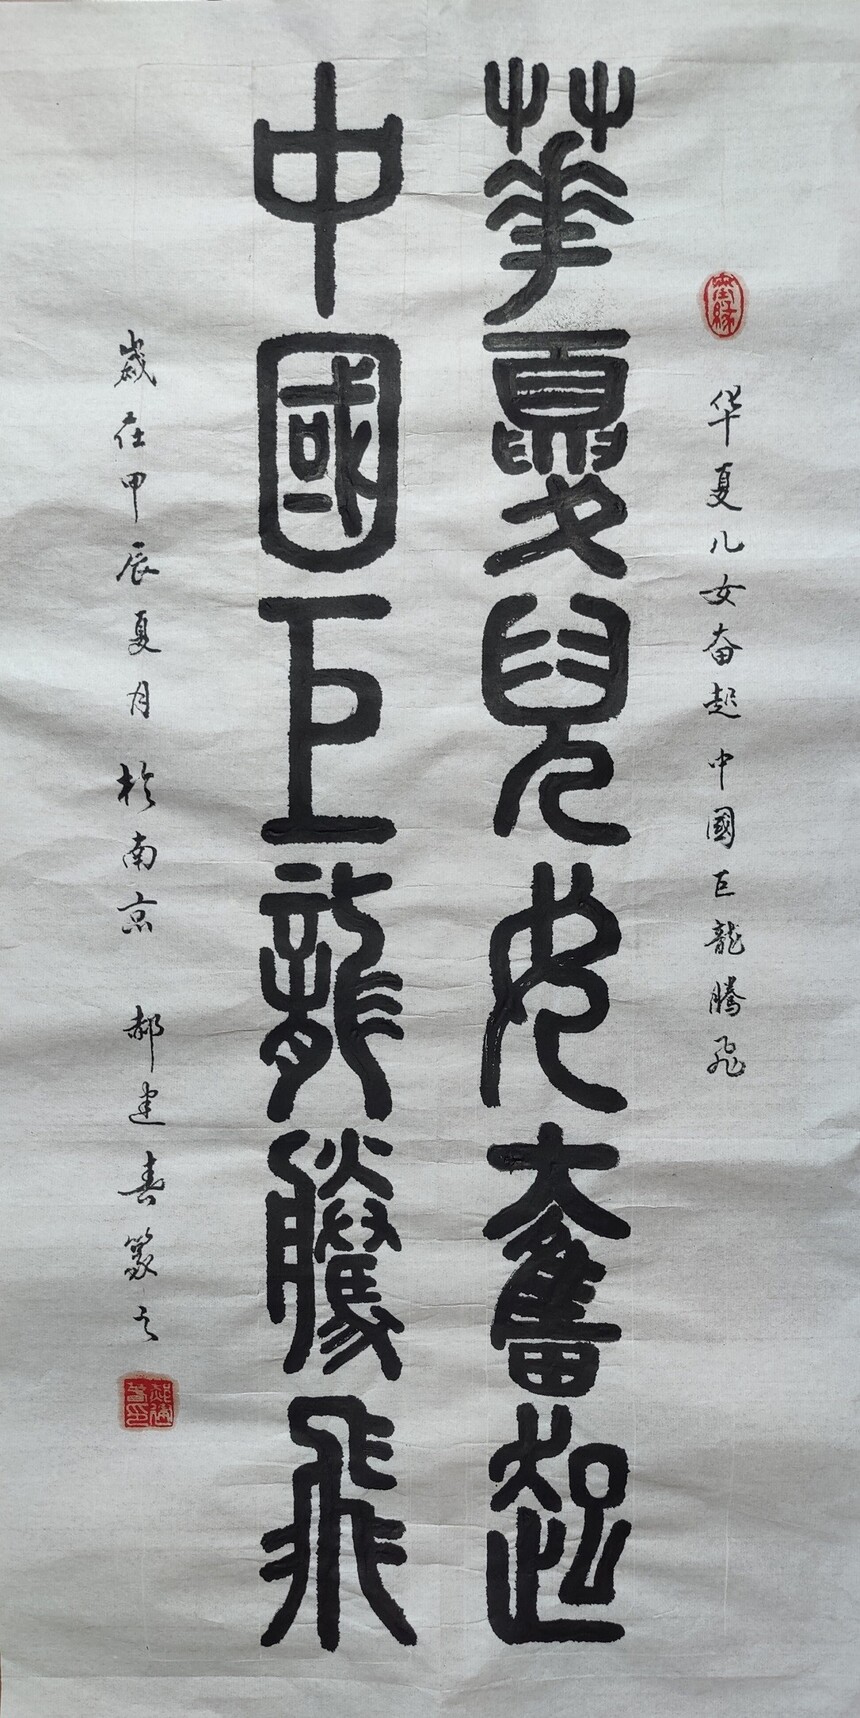 墨缘
华夏儿女奋起中國巨龍騰飞
華夏兒女奮起
中國巨龍騰飛
歲在甲辰夏月於南京 郝建春篆之
郝建春印